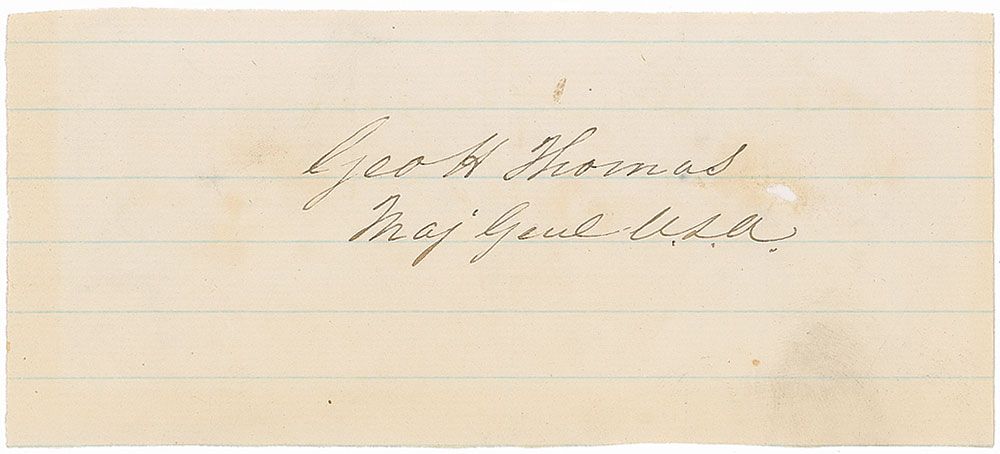 Geo H Thomas
Maj Genl U.S.A.